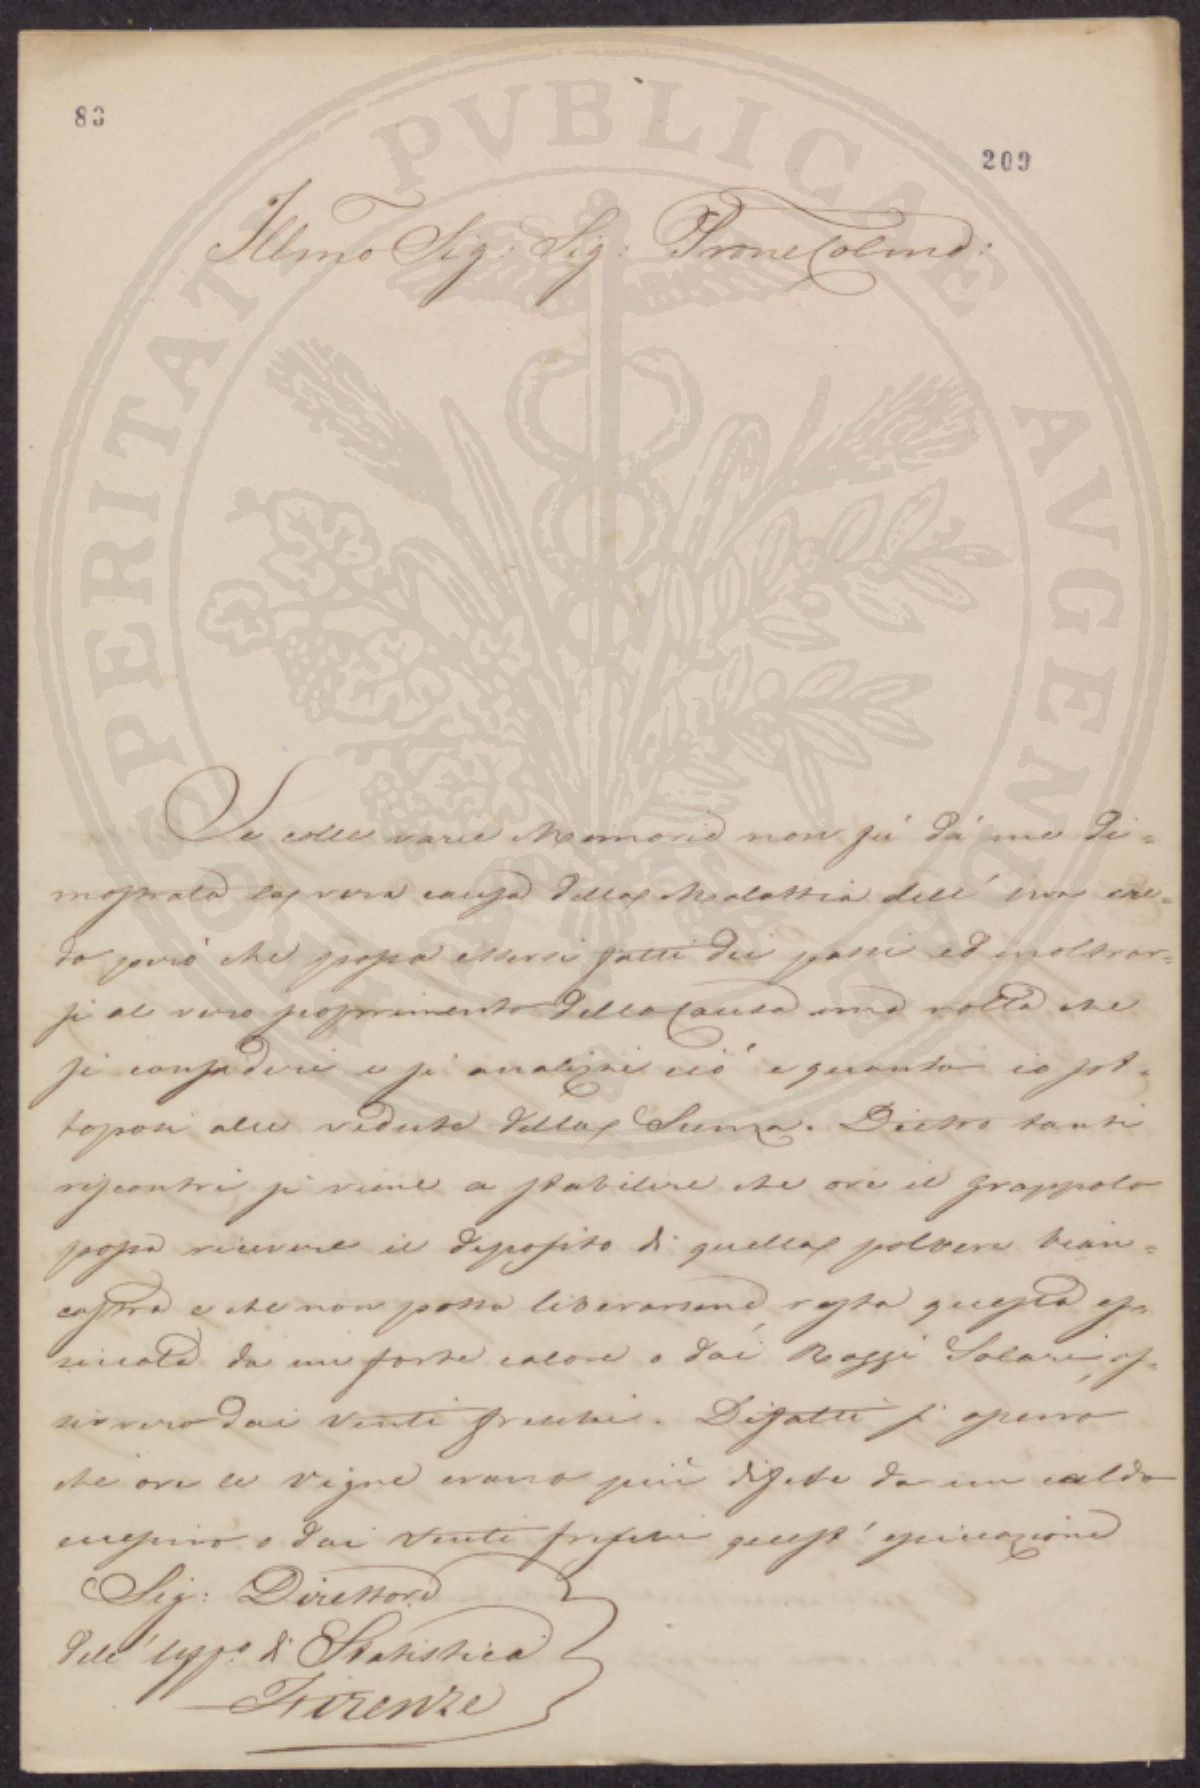 83
209
Illmo Sig: Sig: Prone Colmo:
Se colle varie Memorie non fu' da' me di=
mostrata la vera causa della Malattia dell' Uva cre=
do però che possa essersi fatti dei passi ed inoltrar=
si al vero scoprimento della Causa una volta che
si consideri e si analizzi ciò e quanto io sot=
toposi alle vedute della Scienza. Dietro tanti
riscontri si viene a stabilire che ove il grappolo
possa ricevere il deposito di quella polvere bian=
castra e che non possa liberarsene, resta questa es=
siccata da un forte calore o dai Raggi Solari, os=
sivvero dai venti freschi. Difatti si osservò
che ove le vigne erano più difese da un caldo
eccessivo o dai venti freschi quest' essiccazione
Sig: Direttore
dell' Uff.o di Statistica
Firenze
PROSPERITATI PVBLICAE AVGENDAE